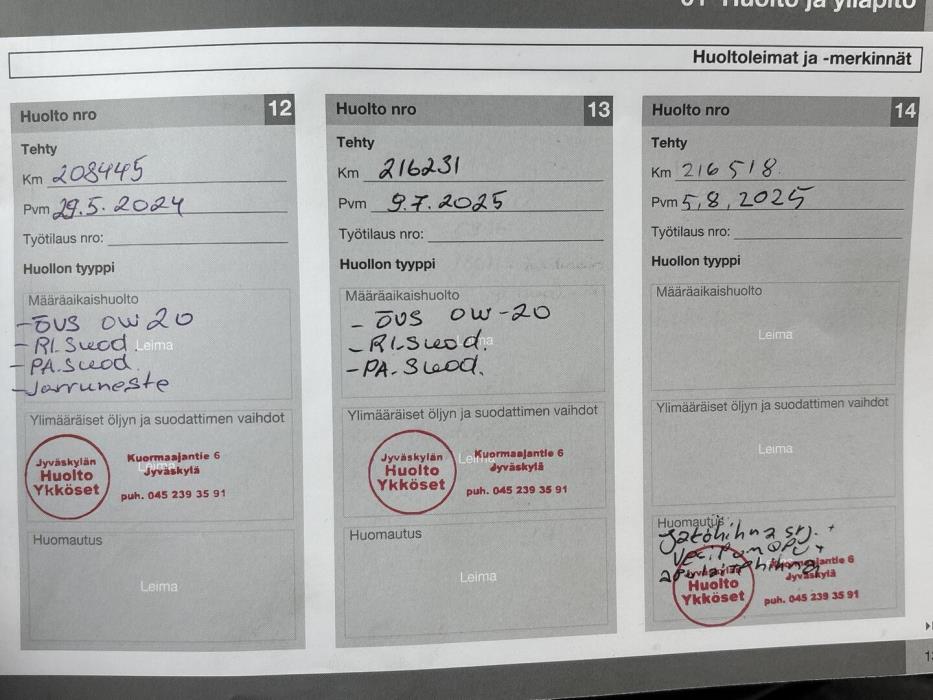 01 Huolto ja ylläpito
Huoltoleimat ja -merkinnät
Huolto nro 12
Tehty
Km 208445
Pvm 29.5.2024
Työtilaus nro:
Huollon tyyppi
Määräaikaishuolto
- ÖVS 0W20
- RI.Suod. Leima
- PA.Suod.
- Jarruneste
Ylimääräiset öljyn ja suodattimen vaihdot
Leima
Jyväskylän
Huolto
Ykköset
Kuormaajantie 6
Jyväskylä
puh. 045 239 35 91
Huomautus
Leima
Huolto nro 13
Tehty
Km 216231
Pvm 9.7.2025
Työtilaus nro:
Huollon tyyppi
Määräaikaishuolto
- ÖVS 0W-20
- RI-Suod. Leima
- PA-Suod.
Ylimääräiset öljyn ja suodattimen vaihdot
Leima
Jyväskylän
Huolto
Ykköset
Kuormaajantie 6
Jyväskylä
puh. 045 239 35 91
Huomautus
Leima
Huolto nro 14
Tehty
Km 216518
Pvm 5,8,2025
Työtilaus nro:
Huollon tyyppi
Määräaikaishuolto
Leima
Ylimääräiset öljyn ja suodattimen vaihdot
Leima
Huomautus
Jakohihna srj. +
Vec.Pumppu +
apulaitehihna
Jyväskylän
Huolto
Ykköset
Kuormaajantie 6
Jyväskylä
puh. 045 239 35 91